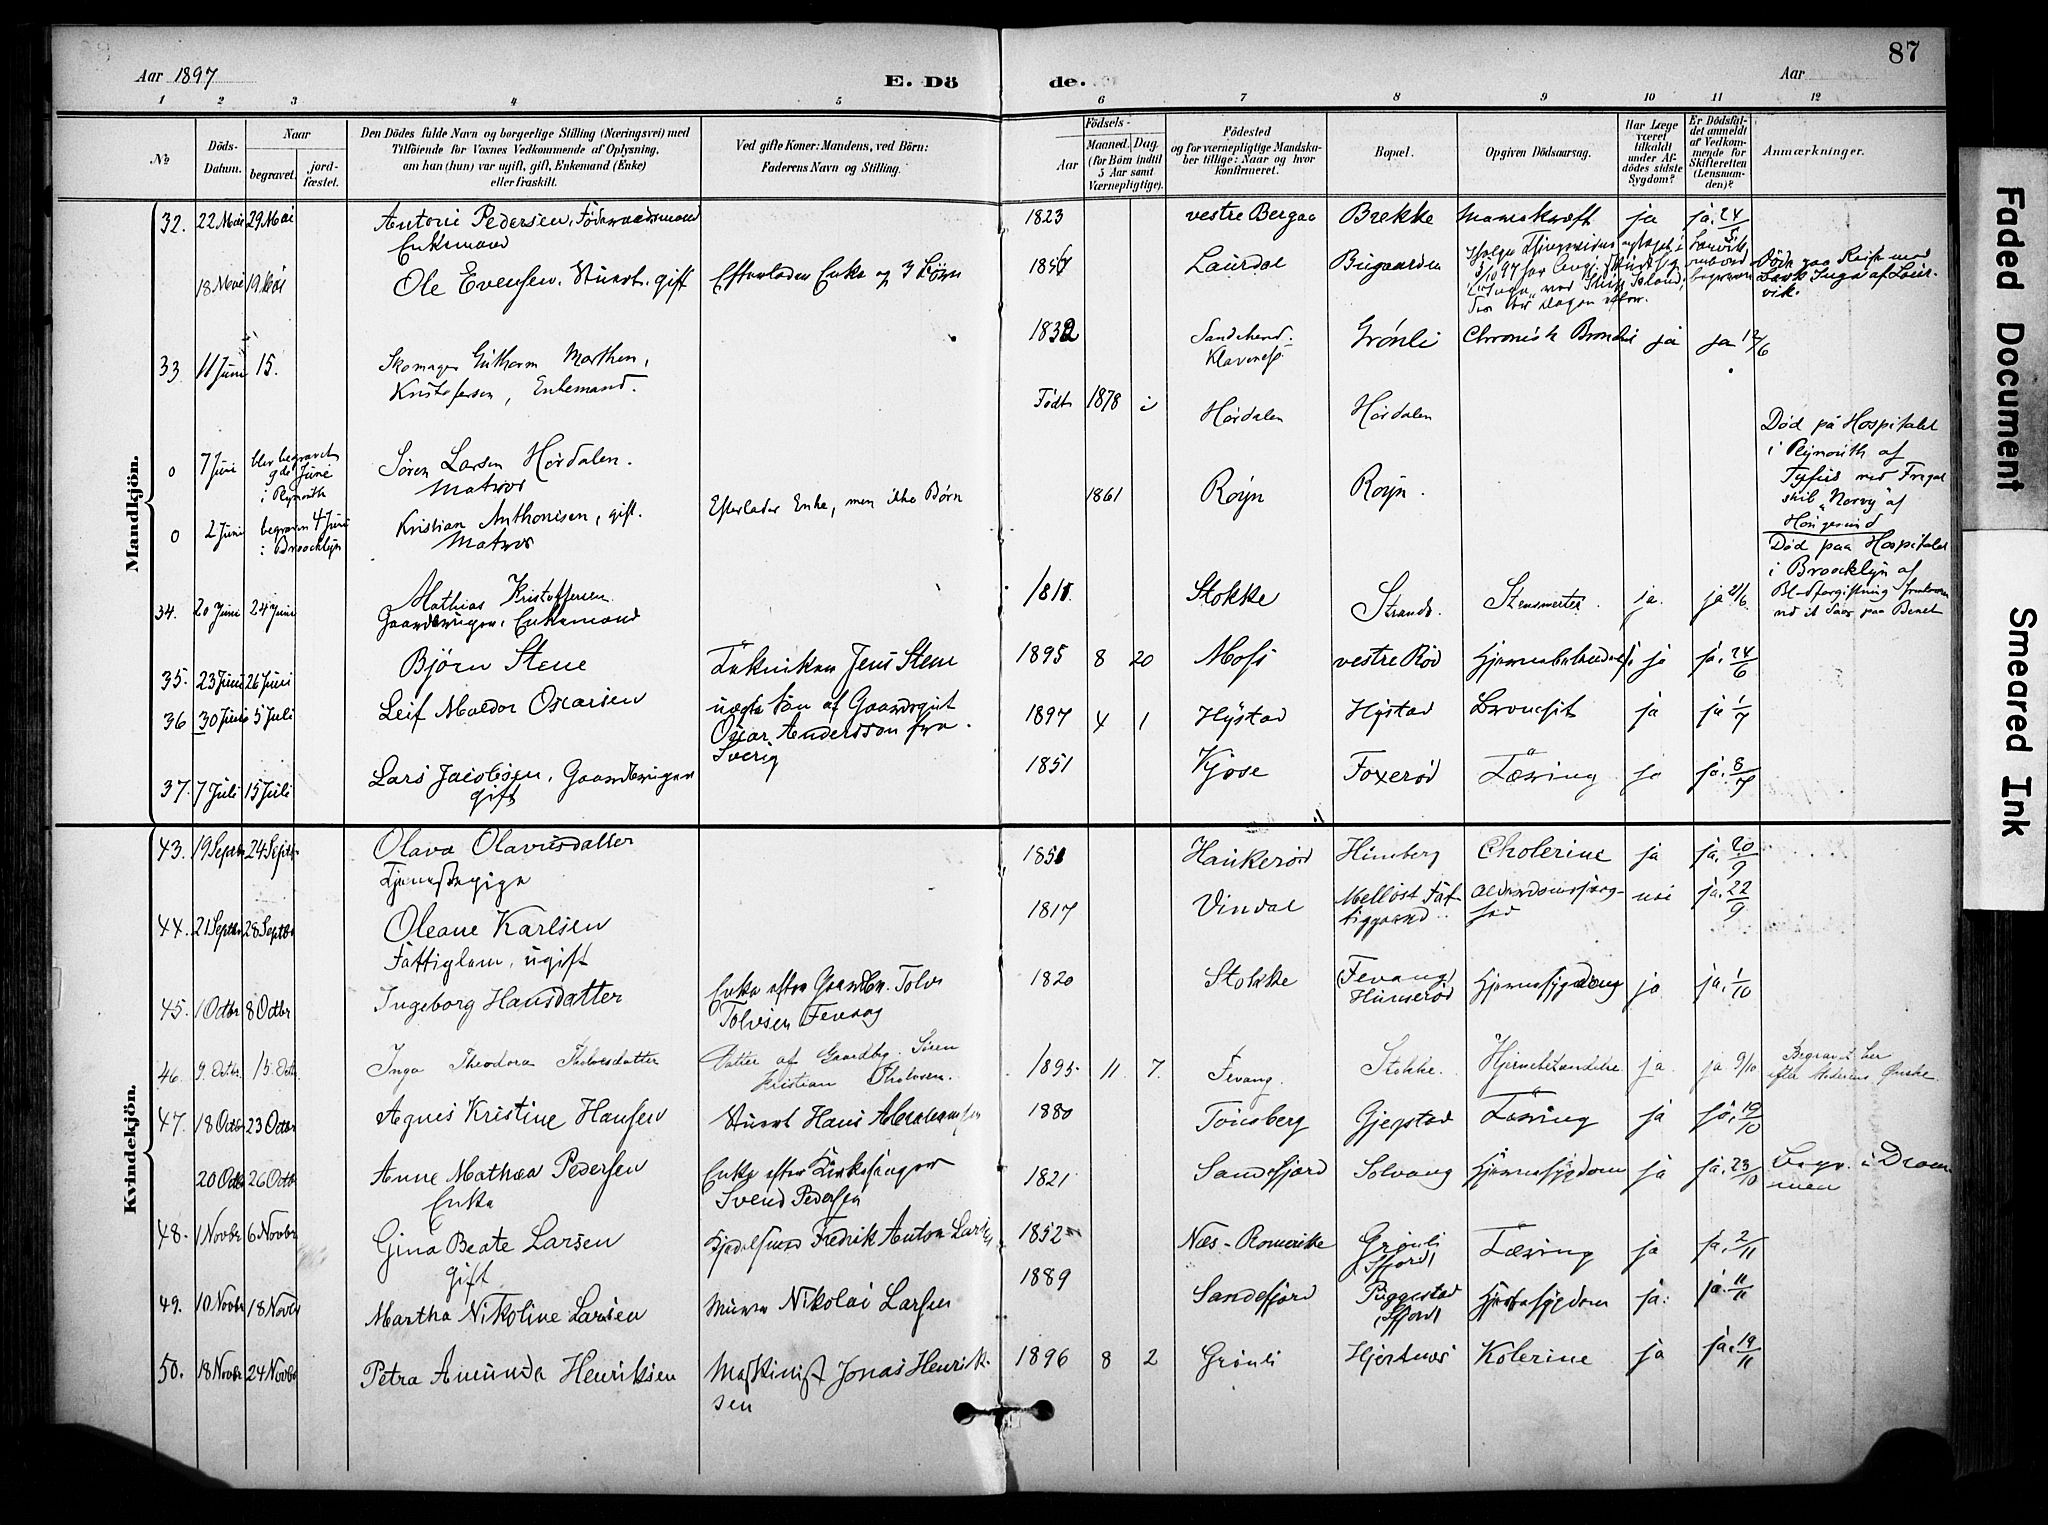 87
Aar 1897
E. Dö
de.
Aar
1 2 3 4 5 6 7 8 9 10 11 12
No
Döds-
Datum.
Naar
begravet.
jord-
fæstet.
Den Dödes fulde Navn og borgerlige Stilling (Næringsvei) med
Tilföiende for Voxnes Vedkommende af Oplysning,
om han (hun) var ugift, gift, Enkemand (Enke)
eller fraskilt.
Ved gifte Koner: Mandens, ved Börn:
Faderens Navn og Stilling.
Födsels-
Aar
Maaned.
Dag.
(for Börn indtil
5 Aar samt
Værnepligtige).
Födested
og for værnepligtige Mandska-
ber tillige: Naar og hvor
konfirmeret.
Bopæl.
Opgiven Dödsaarsag.
Har Læge
været
tilkaldt
under Af-
dödes sidste
Sygdom?
Er Dödsfal-
det anmeldt
af Vedkom-
mende for
Skifteretten
(Lensman-
den)?
Anmærkninger.
Mandkjön.
32. 22 Mai 29 Mai Antoni Pedersen, Föderaadsmand 1823 vestre Bergaa Brekke Marasmus ja ja. 24/5
Enkemand
18 Mai 19 Mai Ole Evensen. Stuert. gift Efterlader Enke og 3 Børn 1857 Laurdal Bugaarden
Døde paa Reise med
Bark Inga af Laur-
vik.
33. 11 Juni 15. Skomager Guthorm Marthin, 1832 Sandeherd. Grönli Chronisk Bronchit ja ja 12/6
Kristofersen, Enkemand. Klavenes
0 7 Juni blev begravet Sören Larsen Hørdalen. Födt 1878 i Hørdalen Hørdalen
9de Juni Matros
i Plymouth
Død på Hospitalet
i Plymouth af
Tyfus ved Fregat
skib "Norvy" af
Haugesund
0 2 Juni begraven 4 Juni Kristian Anthonisen, gift. Efterlader Enke, men ikke Børn 1861 Røyn Røyn.
i Broocklyn Matros
Død paa Hospitalet
i Broocklyn af
Blodforgiftning
ved et Saar paa Benet
34. 20 Juni 24 Juni Mathias Kristoffersen 1811. Stokke Strande. Stensmerter. ja. ja 21/6
Gaardbruger, Enkemand
35. 23 Juni 26 Juni Björn Stene Tekniker Jens Stene 1895 8 20 Moss vestre Rød Hjernebetændelse ja ja. 24/6
36 30 Juni 5 Juli Leif Maldor Oscarsen uægte søn af Gaardsgut 1897 4 1 Hystad Hystad Bronchit ja ja 1/7
Oscar Andersson fra
Sverig
37. 7 Juli 15 Juli Lars Jacobsen, Gaardbruger 1851 Kjose Foxerød Tæring ja ja. 8/7
gift
Kvindekjön.
43. 19 Septbr 24 Septbr Olava Olavusdatter 1851 Haukerød Himberg Cholerine ja ja. 20/9
Tjenestepige
44. 21 Septbr 28 Septbr Oleane Karlsen 1817 Vindal Melløst Fat- Alderdomssvag- nei ja. 22/9
Fattiglem, ugift tiggaard hed
45. 1 Octbr 8 Octbr Ingeborg Hansdatter Enke efter Gaardbr. Tolv 1820 Stokke Fevang Hjernesygdom ja ja. 1/10
Tolvsen Fevang Hunserød
46. 9. Octbr. 15. Octbr. Inga Theodora Tholvsdatter Datter af Gaardbg. Sören 1895. 11. 7. Fevang. Stokke. Hjernebetændelse ja. ja 9/10 Begravet her
Kristian Tholvsen. efter Moderens Ønske.
47. 18 Octbr 23 Octbr Agnes Kristine Hansen Stuert Hans Abrahamsen 1880 Tönsberg Gjegstad Tæring ja ja. 19/10
20 Octbr 26 Octbr Anne Mathea Pedersen Enke efter Kirkesanger 1821 Sandefjord Solvang Hjernesygdom ja ja. 23/10 Begr. i Dram
Enke Svend Pedersen men
48. 1 Novbr 6 Novbr Gina Beate Larsen Kjedelsmed Fredrik Anton Larsen 1852 Næs-Romerike Grönli Tæring ja ja. 2/11
gift Sfjord
49. 10 Novbr 18 Novbr Martha Nikoline Larsen Murer Nikolai Larsen 1889 Sandefjord Puggestad Hjertesygdom ja. ja. 11/11
Sfjord
50. 18 Novbr 24 Novbr Petra Amunda Henriksen Maskinist Jonas Henrik- 1896 8 2 Grönli Hjertnæs Kolerine ja ja. 19/11
sen
Faded Document
Smeared Ink